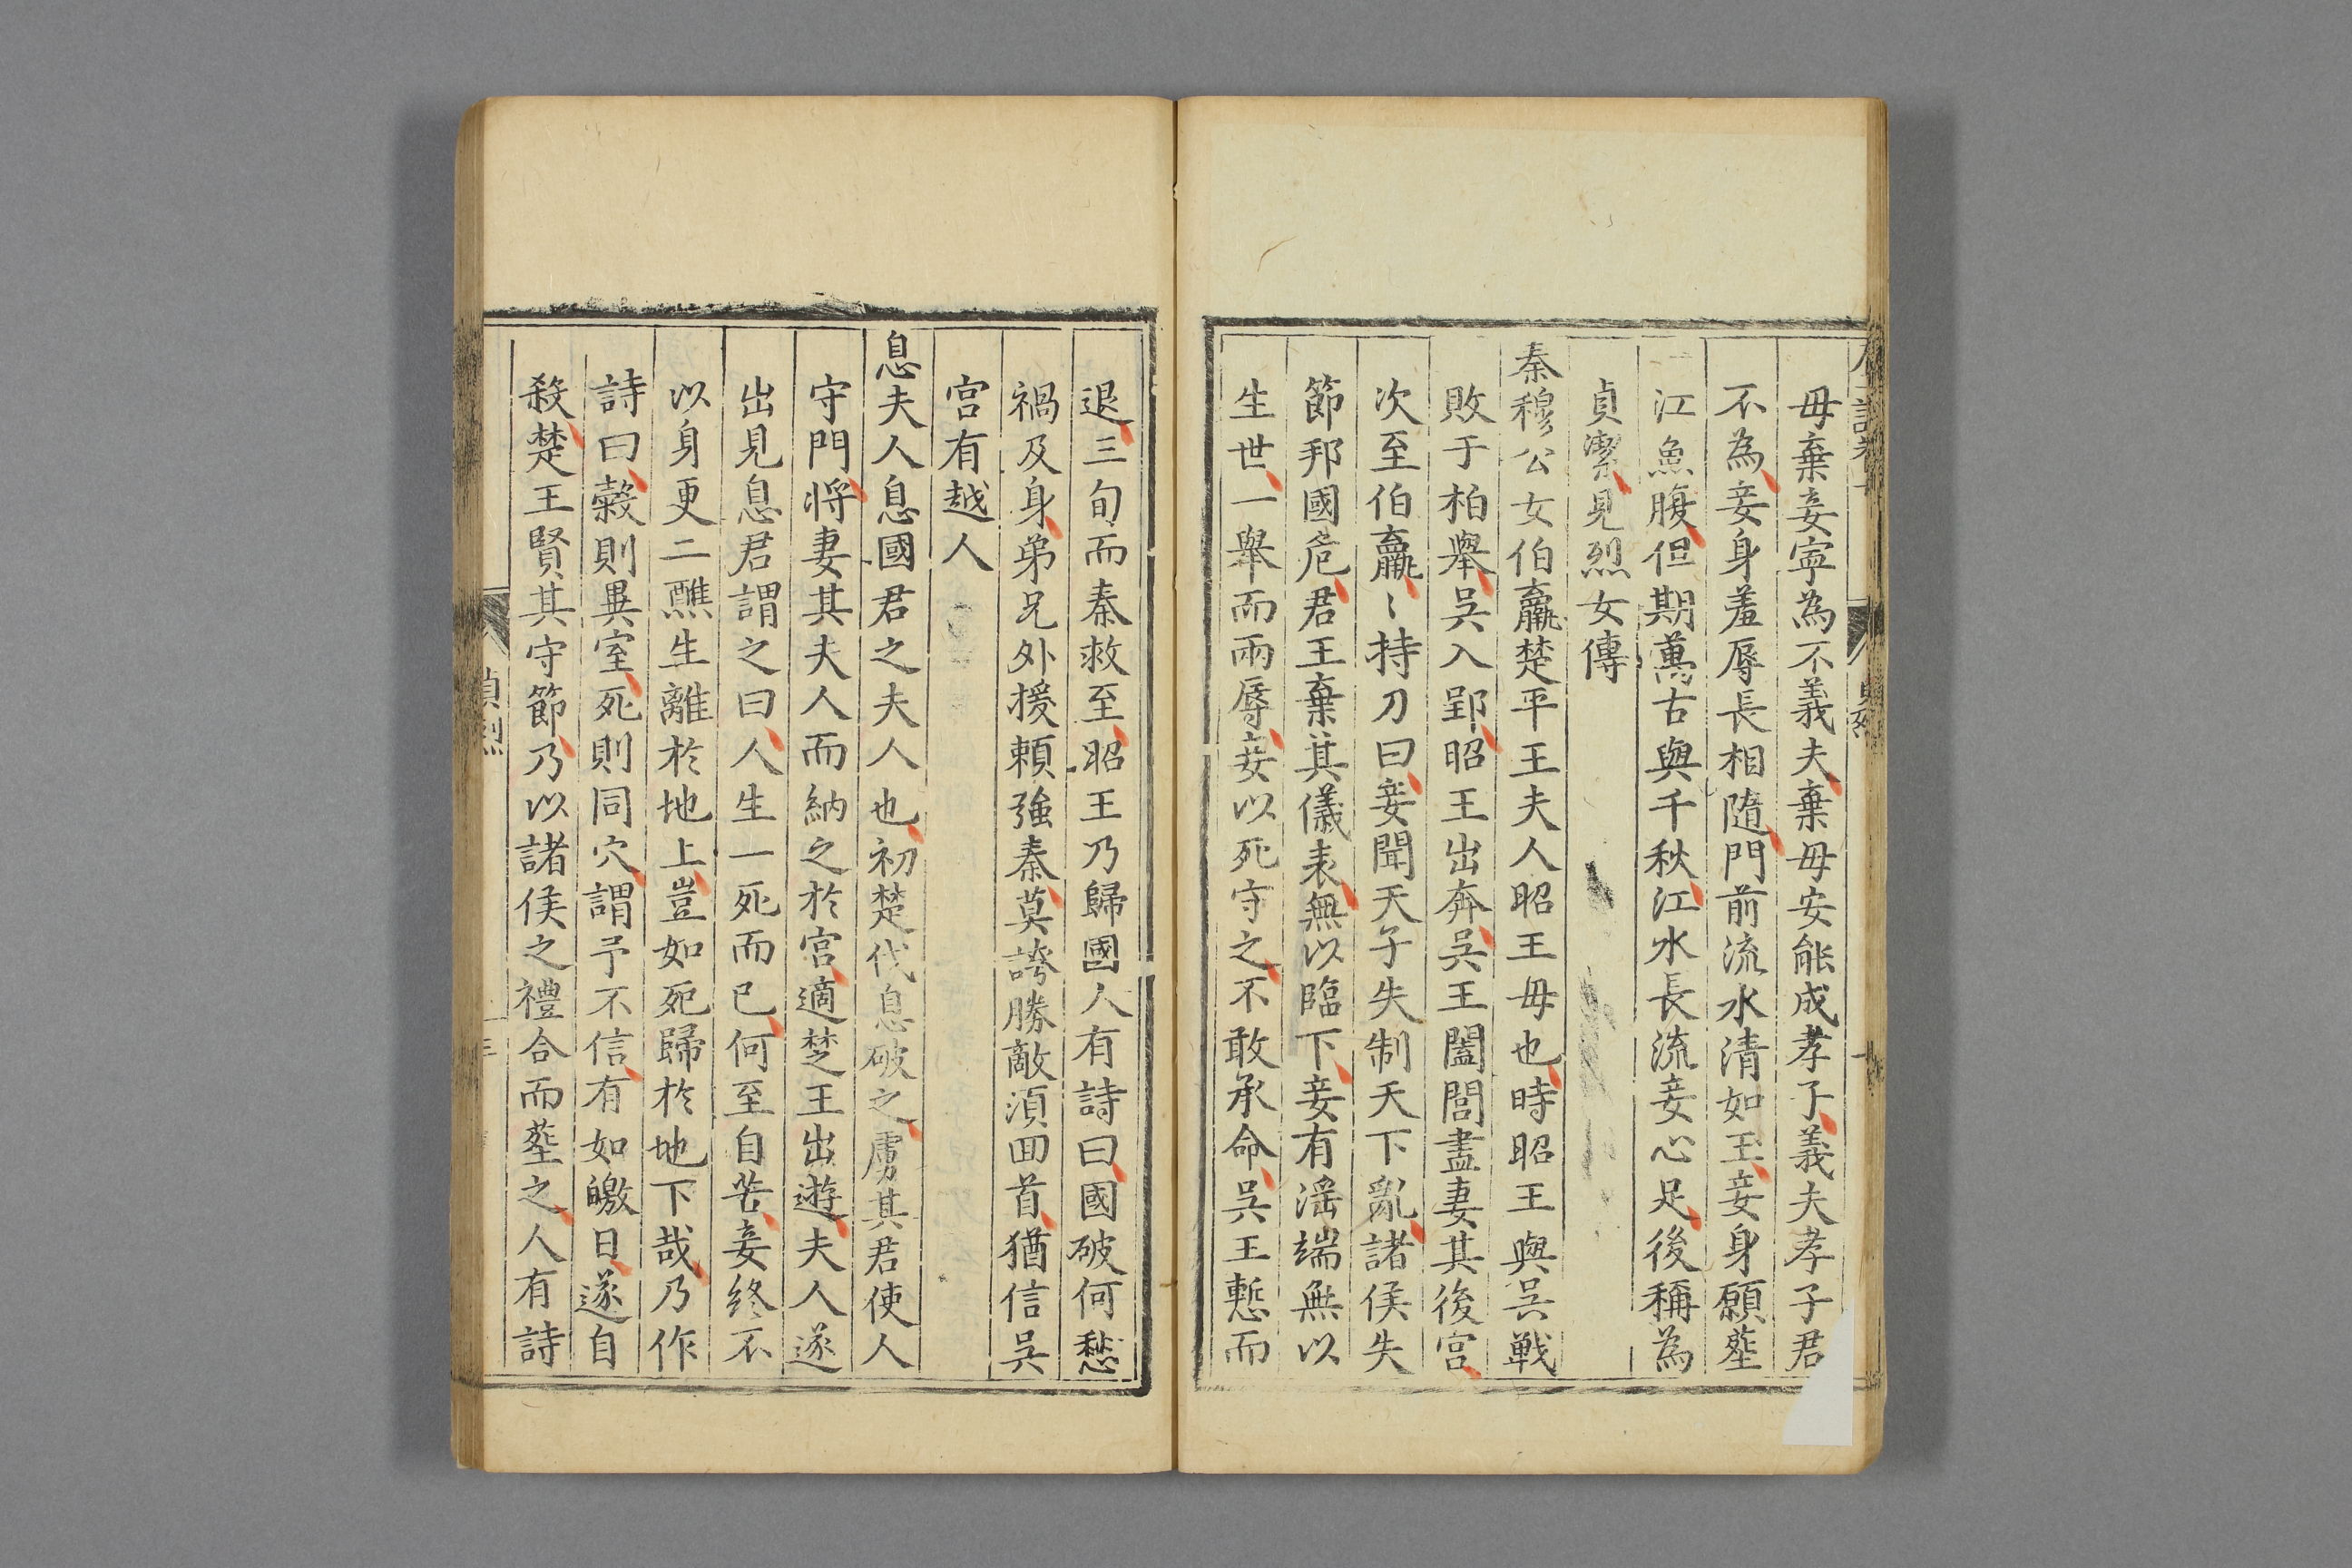 母棄妾寕為不義夫棄母安能成孝子義夫孝子君
不為妾身羞辱長相隨門前流水清如玉妾身願塟
江魚腹但期萬古與千秋江水長流妾心足後稱為
貞潔見烈女傳
秦穆公女伯嬴楚平王夫人昭王母也時昭王與吳戰
敗于柏舉吳入郢昭王出奔吳王闔閭盡妻其後宮
次至伯嬴〻持刀曰妾聞天子失制天下亂諸侯失
節邦國危君王棄其儀表無以臨下妾有滛端無以
生世一舉而兩辱妾以死守之不敢承命吳王慙而
退三旬而秦救至昭王乃歸國人有詩曰國破何愁
禍及身弟兄外援頼強秦莫誇勝敵湏回首猶信吳
宮有越人
息夫人息國君之夫人也初楚伐息破之虜其君使人
守門將妻其夫人而納之於宮適楚王出遊夫人遂
出見息君謂之曰人生一死而已何至自苦妾終不
以身更二醮生離於地上豈如死歸於地下哉乃作
詩曰榖則異室死則同穴謂予不信有如皦日遂自
殺楚王賢其守節乃以諸侯之禮合而塟之人有詩
貞烈